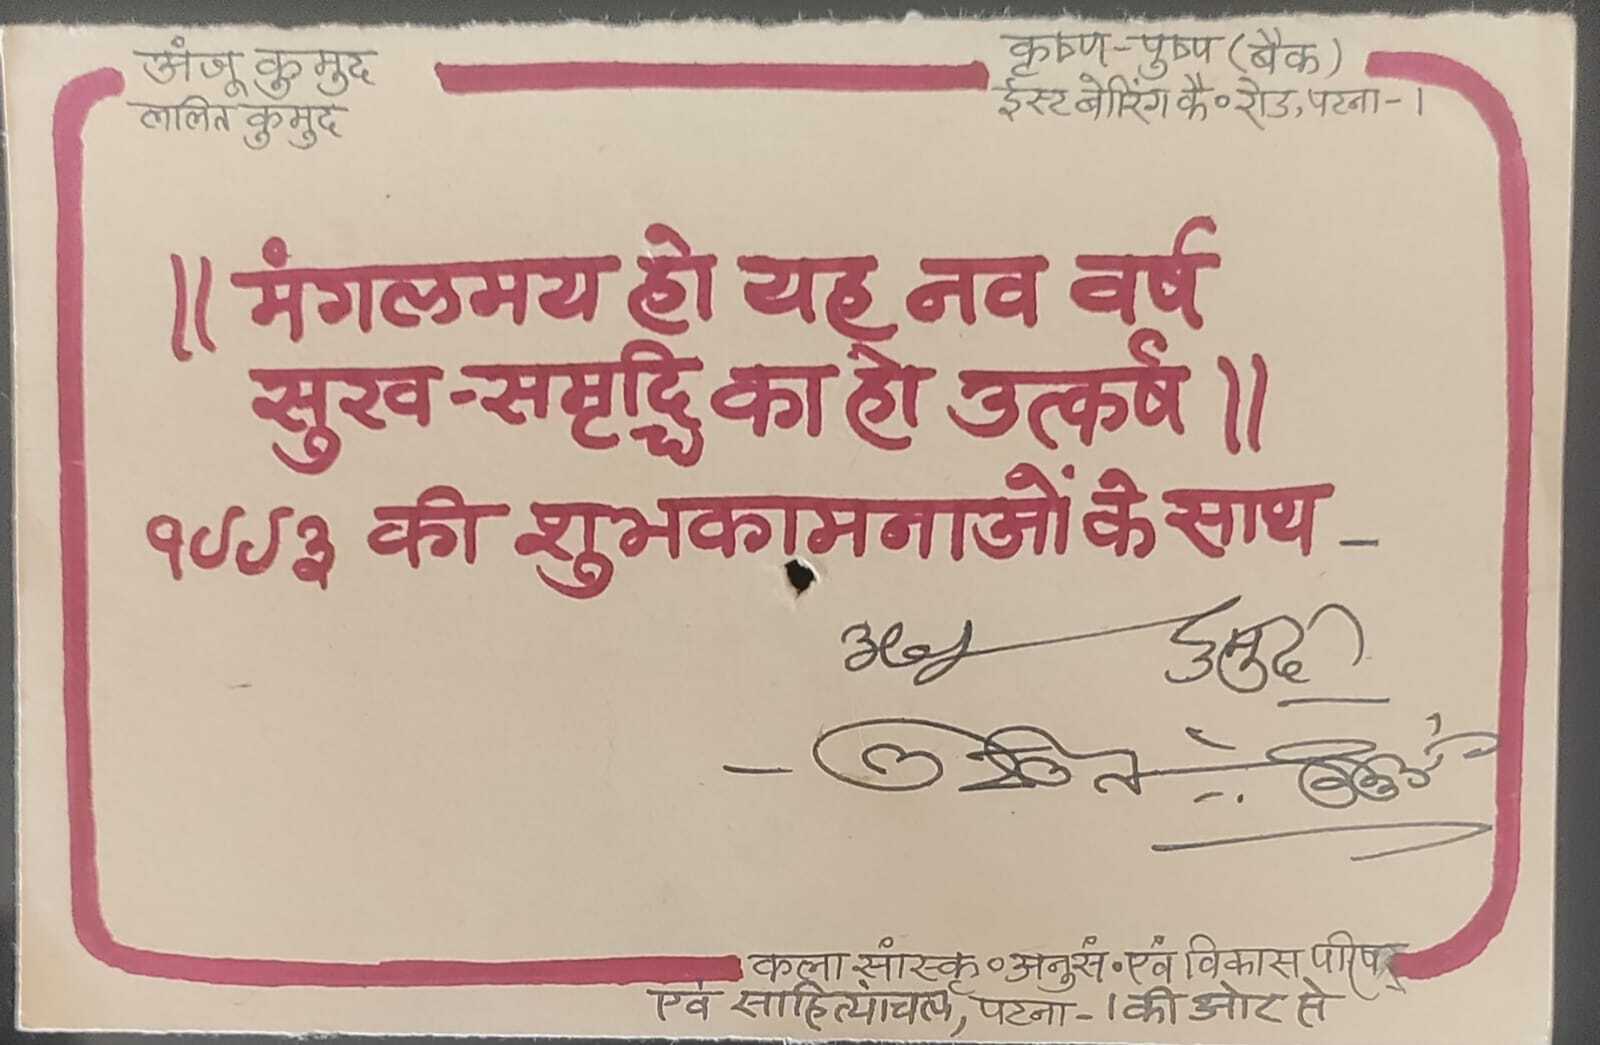 अंजू कुमुद
ललित कुमुद
कृष्ण-पुष्प (बैंक)
ईस्ट बोरिंग कै॰ रोड, पटना-1
॥ मंगलमय हो यह नव वर्ष
सुख-समृद्धि का हो उत्कर्ष ॥
१९९३ की शुभकामनाओं के साथ -
अंजू कुमुद
- ललित कुमुद
कला सांस्कृ॰ अनुसं॰ एवं विकास परिषद
एवं साहित्यांचल, पटना-1 की ओर से